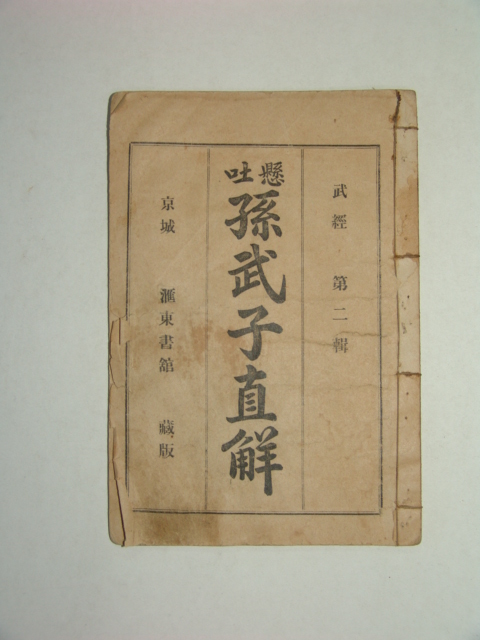 武經 第二輯
懸吐
孫武子直解
京城 滙東書舘 藏版